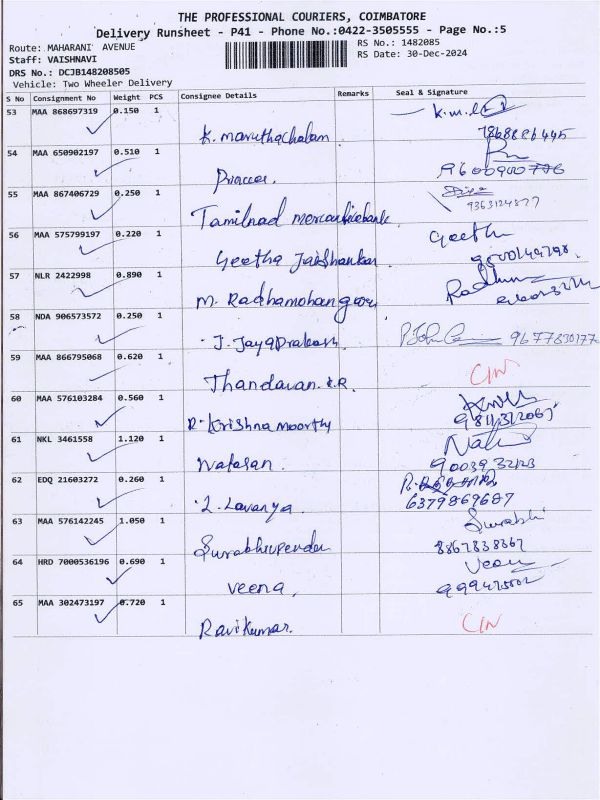 THE PROFESSIONAL COURIERS, COIMBATORE
Delivery Runsheet - P41 - Phone No.:0422-3505555 - Page No.:5
Route: MAHARANI AVENUE RS No.: 1482085
Staff: VAISHNAVI RS Date: 30-Dec-2024
DRS No.: DCJB148208505
Vehicle: Two Wheeler Delivery
S No Consignment No Weight PCS Consignee Details Remarks Seal & Signature
53 MAA 868697319 0.150 1
K. maruthachalam
54 MAA 650902197 0.510 1
55 MAA 867406729 0.250 1
Tamilnad mercantile bank
9363124877
56 MAA 575799197 0.220 1 Geeth
Geetha Jaishankar
57 NLR 2422998 0.890 1
M. Radhamohan
58 NDA 906573572 0.250 1
J. Jayaprakash 9677830177
59 MAA 866795068 0.620 1
Thandavan. K.R. CIN
60 MAA 576103284 0.560 1
R. Krishna moorthy
61 NKL 3461558 1.120 1
Natasan.
62 EDQ 21603272 0.260 1
L. Lavanya. 6379869687
63 MAA 576142245 1.050 1 Surabhi
8867838367
64 HRD 7000536196 0.690 1 Veena
veena,
65 MAA 302473197 0.720 1 CIN
Ravikumar.